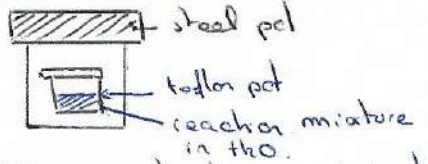 steel pot
teflon pot
reaction mixture
in H2O.